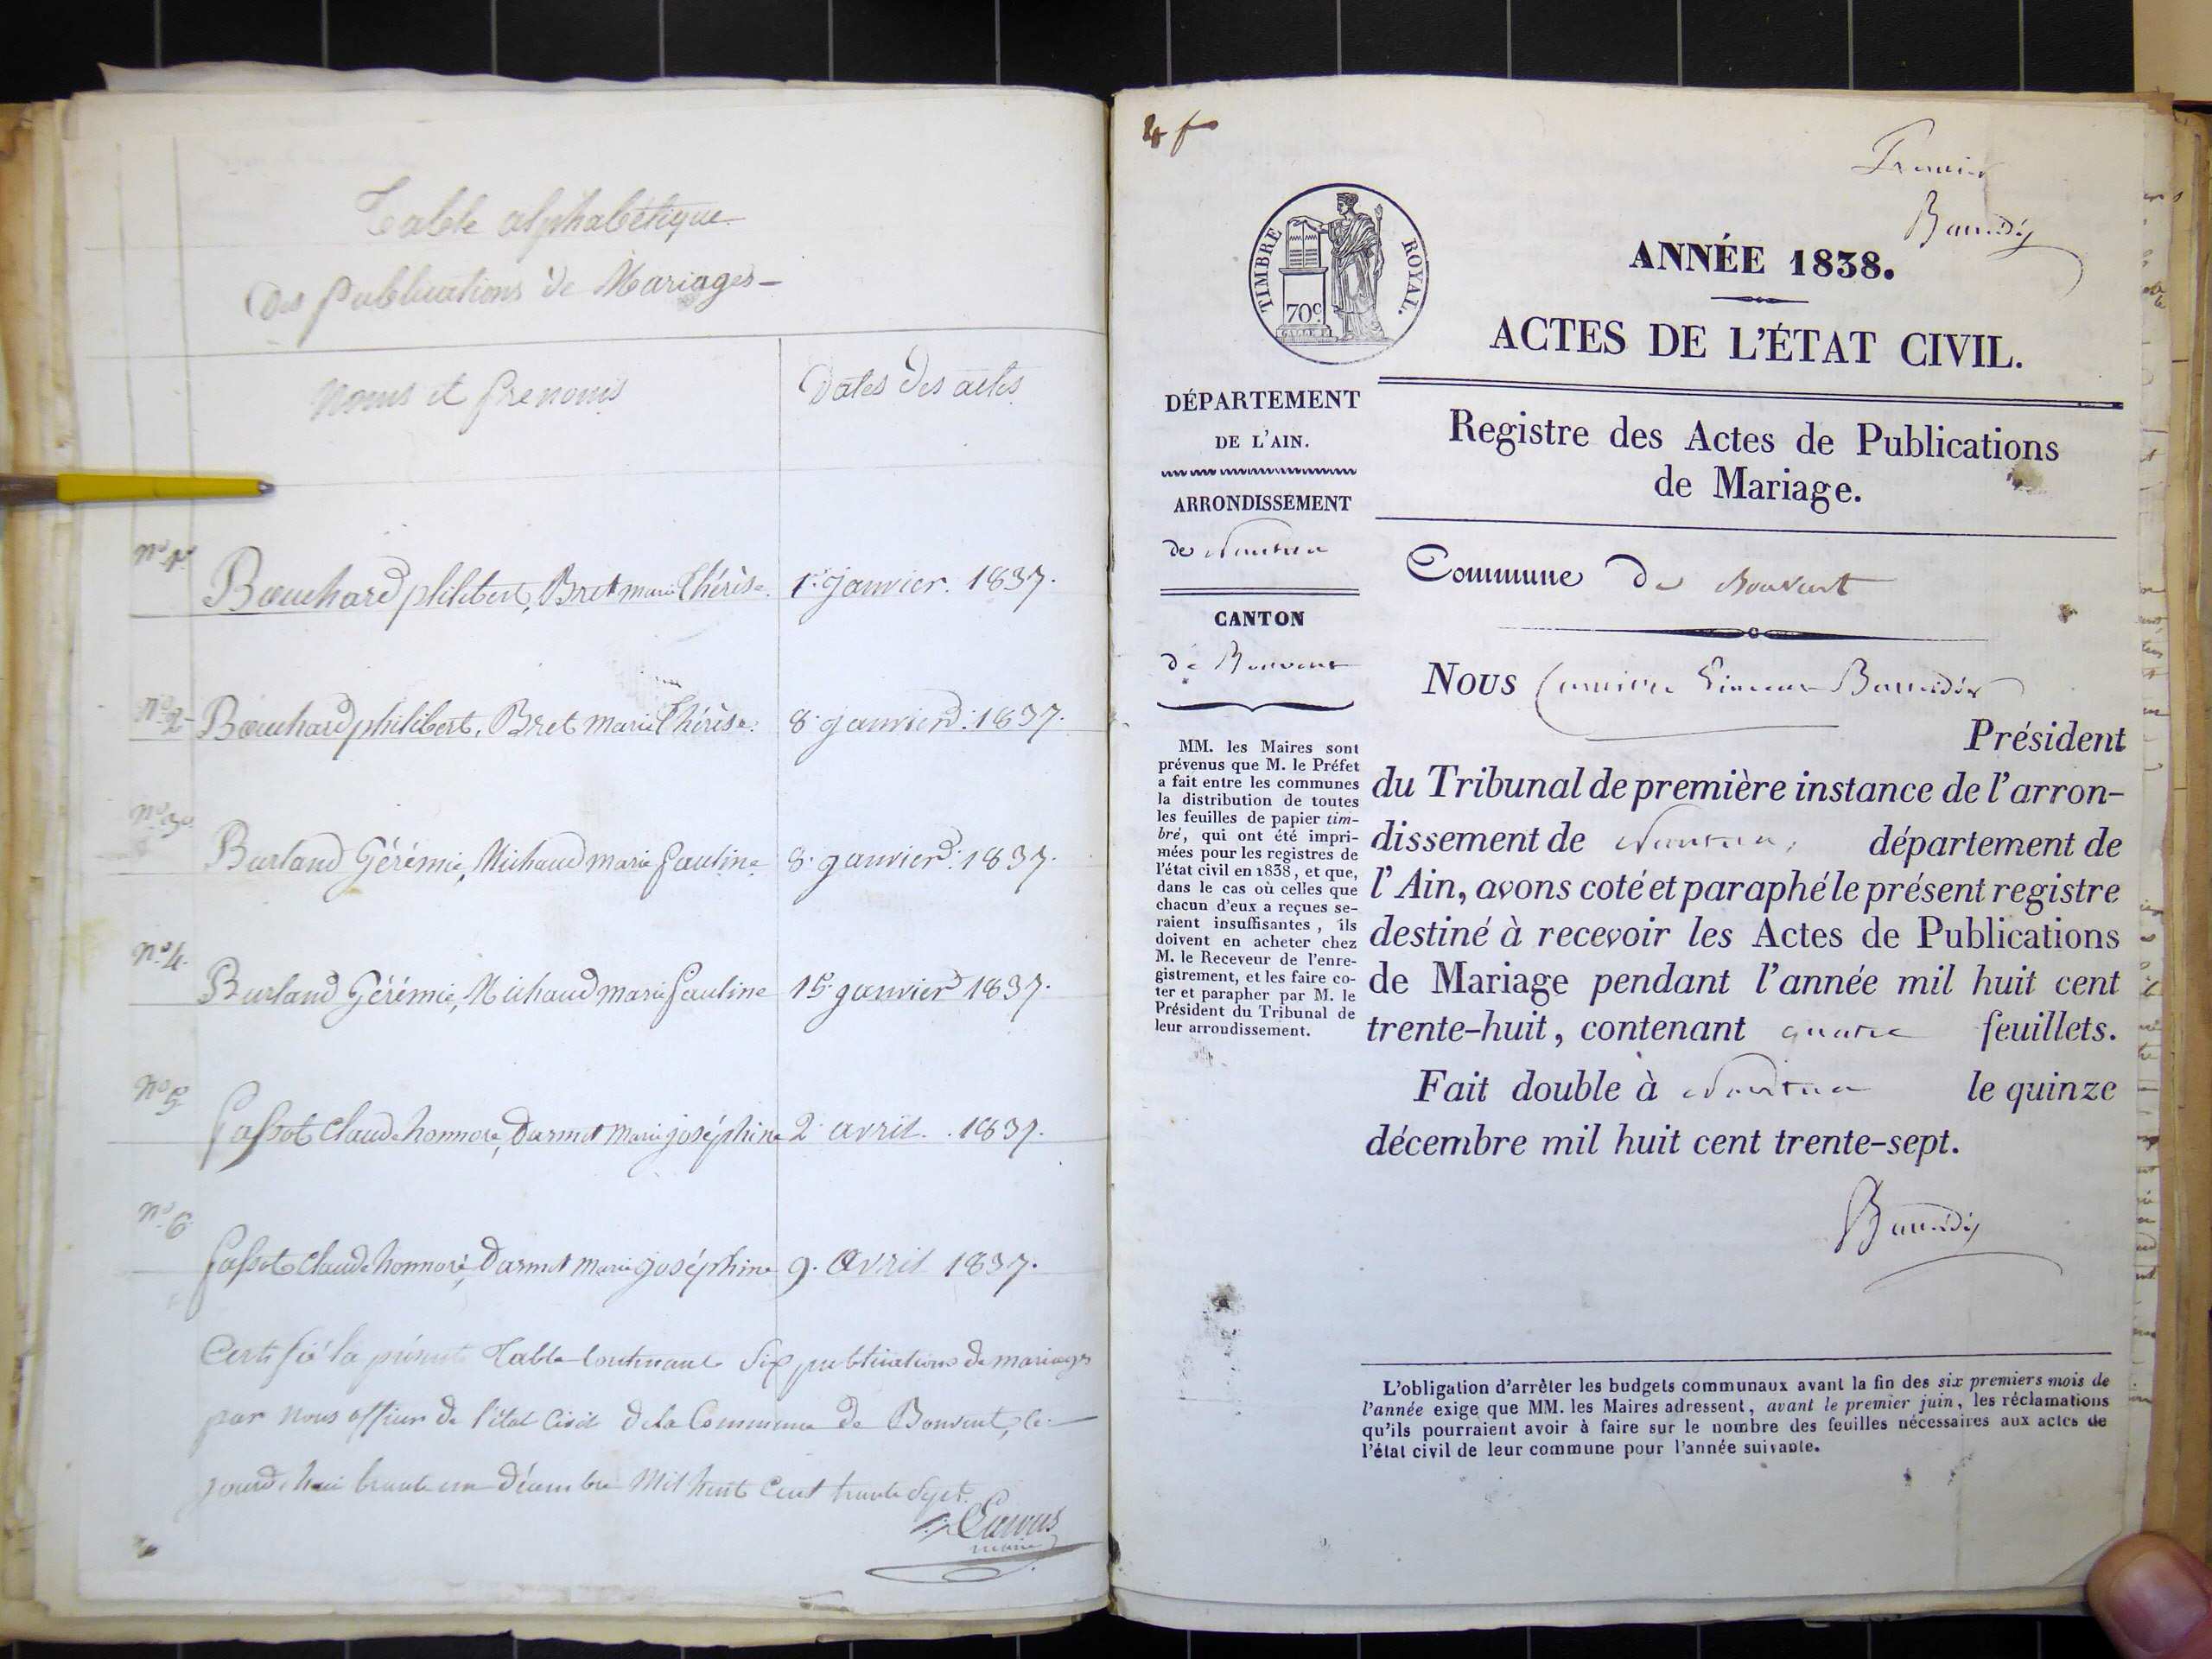 Table alphabétique
Des Publications de Mariages
Noms et prenoms
Dates des actes
No 1
Bouchard philibert, Bret marie thérèse. 1er janvier. 1837.
No 2 Bouchard philibert, Bret marie thérèse. 8 janvier 1837.
No 3
Burland Gérémie, Michaud marie pauline 8 janvier 1837.
No 4
Burland Gérémie, Michaud marie pauline 15 janvier 1837.
No 5
passot Claude honnoré, Darmet marie joséphine 2 avril. 1837.
No 6
passot Claude honnoré, Darmet marie joséphine 9. avril 1837.
Certifié la présente Table contenant Six publications de mariages
par nous officier de l'état Civil de la Commune de Bouvent, ce
jourd'hui trente un Décembre Mil huit Cent trente Sept.
maire
4 f
Premier
TIMBRE ROYAL.
70c.
ANNÉE 1838.
ACTES DE L'ÉTAT CIVIL.
DÉPARTEMENT
DE L'AIN.
ARRONDISSEMENT
de Nantua
CANTON
de
Registre des Actes de Publications
de Mariage.
Commune de Bouvent
Nous
Président
du Tribunal de première instance de l'arron-
dissement de Nantua, département de
l'Ain, avons coté et paraphé le présent registre
destiné à recevoir les Actes de Publications
de Mariage pendant l'année mil huit cent
trente-huit, contenant quatre feuillets.
Fait double à Nantua le quinze
décembre mil huit cent trente-sept.
MM. les Maires sont
prévenus que M. le Préfet
a fait entre les communes
la distribution de toutes
les feuilles de papier tim-
bré, qui ont été impri-
mées pour les registres de
l'état civil en 1838, et que,
dans le cas où celles que
chacun d'eux a reçues se-
raient insuffisantes, ils
doivent en acheter chez
M. le Receveur de l'enre-
gistrement, et les faire co-
ter et parapher par M. le
Président du Tribunal de
leur arrondissement.
L'obligation d'arrêter les budgets communaux avant la fin des six premiers mois de
l'année exige que MM. les Maires adressent, avant le premier juin, les réclamations
qu'ils pourraient avoir à faire sur le nombre des feuilles nécessaires aux actes de
l'état civil de leur commune pour l'année suivante.